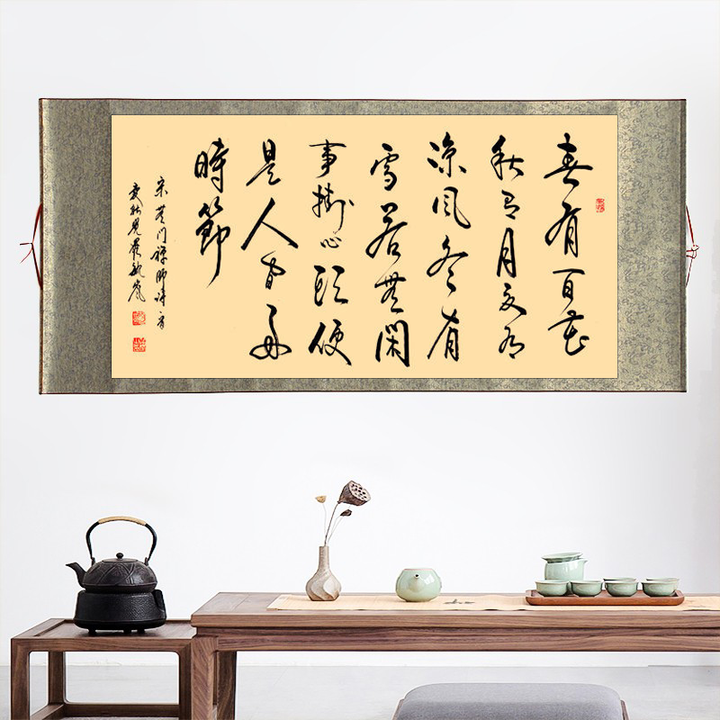 春有百花
秋有月夏有
涼風冬有
雪若無閑
事掛心頭便
是人間好
時節
宋無門禪師詩